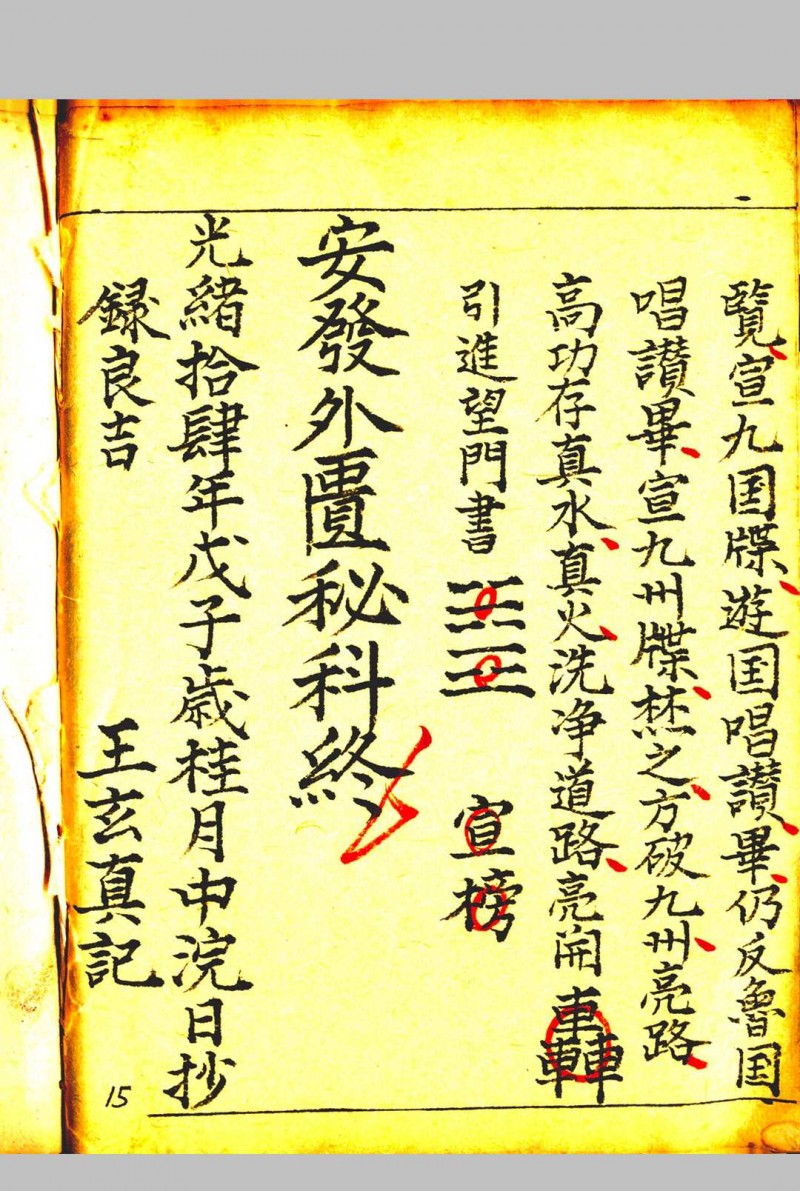 覧宣九国牒遊国唱讃畢仍反魯国
唱讃畢宣九州牒焚之方破九州亮路
高功存真水真火洗净道路亮開轟
引進望門書 宣榜
安發外匱秘科終
光緒拾肆年戊子歲桂月中浣日抄
録良吉 王玄真記
15